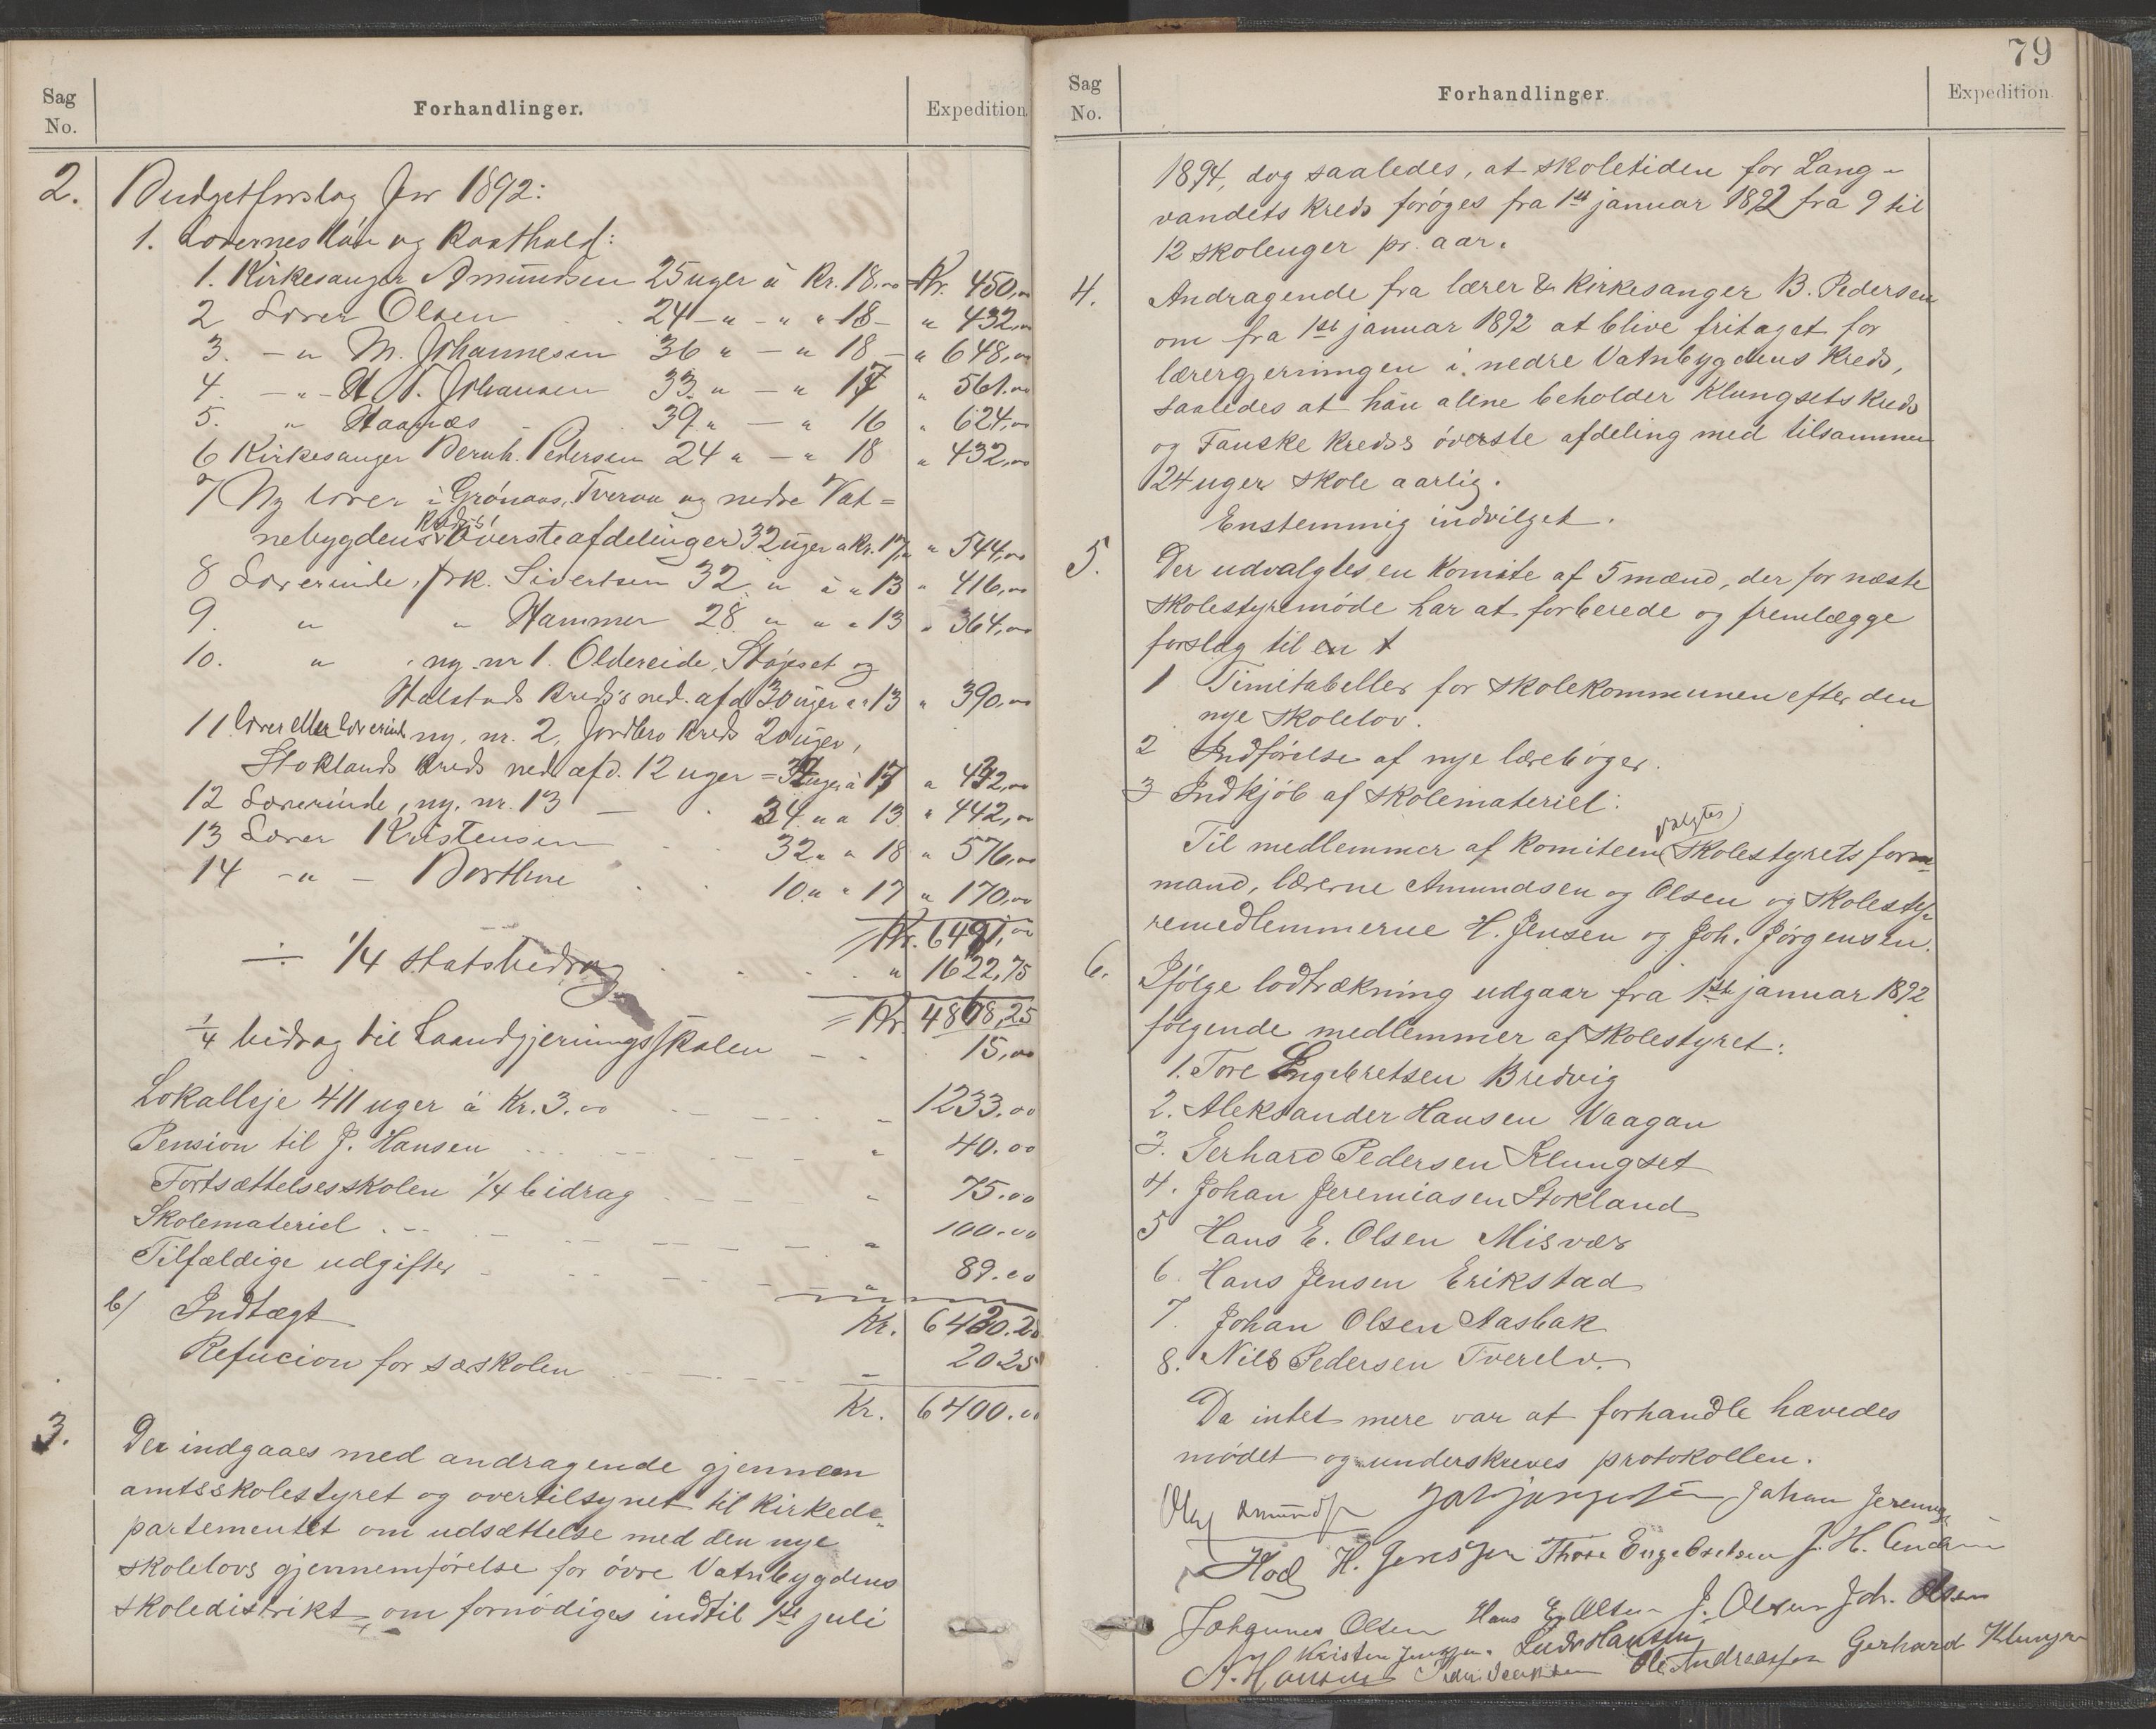 Sag
No.
Forhandlinger.
Expedition
2. Budgetforslag for 1892:
1. Lærernes løn og kosthold:
1. Kirkesanger Amundsen 25 uger á Kr. 18.00 Kr. 450,00
2 Lærer Olsen 24 - " - " " 18 - " 432,00
3. - " M. Johannesen 36 " - " 18 - " 648,00
4. - " - H. N. Johansen 33 " - " 17 " 561.00
5. " Haanæs 39 " - " 16 " 624,00
6 Kirkesanger Bernh. Pedersen 24 " - " 18 " 432,00
7 Ny lærer i Grønaas, Tveraa og nedre Vat=
nebygdens kredses øverste afdelinger 32 uger a Kr. 17,00 " 544,00
8 Lærerinde, frk. Sivertsen 32 " á " 13 " 416,00
9. " " Hammer 28 " " " 13 " 364,00
10. " , ny nr 1. Oldereide, Støvset og
Halstads kreds's ned. afd 30 uger a " 13 " 390,00
11 lærer eller lærerinde ny. nr. 2, Jordbro kreds 20 uger,
Stoklands kreds ned. afd. 12 uger = uger á
12 Lærerinde, ny. nr. 13 - 34 " a 13 " 442,00
13 Lærer Kristensen 32 " " 18 " 576,00
14 - " - 10 " " 17 " 170,00
Kr. 6491,00
÷ 1/4 statsbidrag " 1622,75
Kr. 4868,25
1/4 bidrag til haandgjerningsskolen 15,00
Lokalleje 411 uger á Kr. 3.00 1233.00
Pension til J. Hansen " 40.00
Fortsættelsesskolen 1/4 bidrag " 75.00
Skolemateriel " 100.00
Tilfældige udgifter " 89.00
Kr. 6420.25
b/ Indtægt
Refucion for særskolen 20 25
Kr. 6400.00
3. Der indgaaes med andragende gjennem
amtsskolestyret og overtilsynet til Kirkede-
partementet om udsættelse med den nye
skolelovs gjennemførelse for øvre Vatnbygdens
skoledistrikt, om fornødiges indtil 1ste juli
79
Sag
No.
Forhandlinger
Expedition.
1894, dog saaledes, at skoletiden for Lang-
vandets kreds forøges fra 1ste januar 1892 fra 9 til
12 skoleuger pr. aar.
4. Andragende fra lærer & kirkesanger B. Pedersen
om fra 1ste januar 1892 at blive fritaget for
lærergjerningen i nedre Vatnbygdens kreds,
saaledes at han alene beholder Klungsets kreds
og Fauske kredss øverste afdeling med tilsammen
24 uger skole aarlig.
Enstemmig indvilget.
5. Der udvalgtes en komite af 5 mænd, der for næste
skolestyremøde har at forberede og fremlægge
forslag til en t
1 Timetabeller for skolekommunen efter den
nye skolelov.
2 Indførelse af nye lærebøger.
3 Indkjøb af skolemateriel:
Til medlemmer af komiteen valgtes skolestyrets for-
mand, lærerne Amundsen og Olsen og skolesty-
remedlemmerne H. Jensen og Joh. Jørgensen.
6. Ifølge lodtrækning udgaar fra 1ste januar 1892
følgende medlemmer af skolestyret:
1. Tore Engebretsen Bredvig
2. Aleksander Hansen Vaagan
3. Gerhard Pedersen Klungset
4. Johan Jeremiasen Stokland
5 Hans E. Olsen Misvær
6. Hans Jensen Erikstad
7. Johan Olsen Aasbak
8. Nils Pedersen Tverelv.
Da intet mere var at forhandle hævedes
mødet og underskreves protokollen.
Amunds Joh Jørgensen Johan Jeremias
H. Jensen Thore Engebretsen J. H.
Johannes Olsen Hans E. Olsen J. Olsen Joh. Olsen
Kristen Jensen. Ludv Hansen
A. Hansen Ole Andreassen Gerhard Klungset